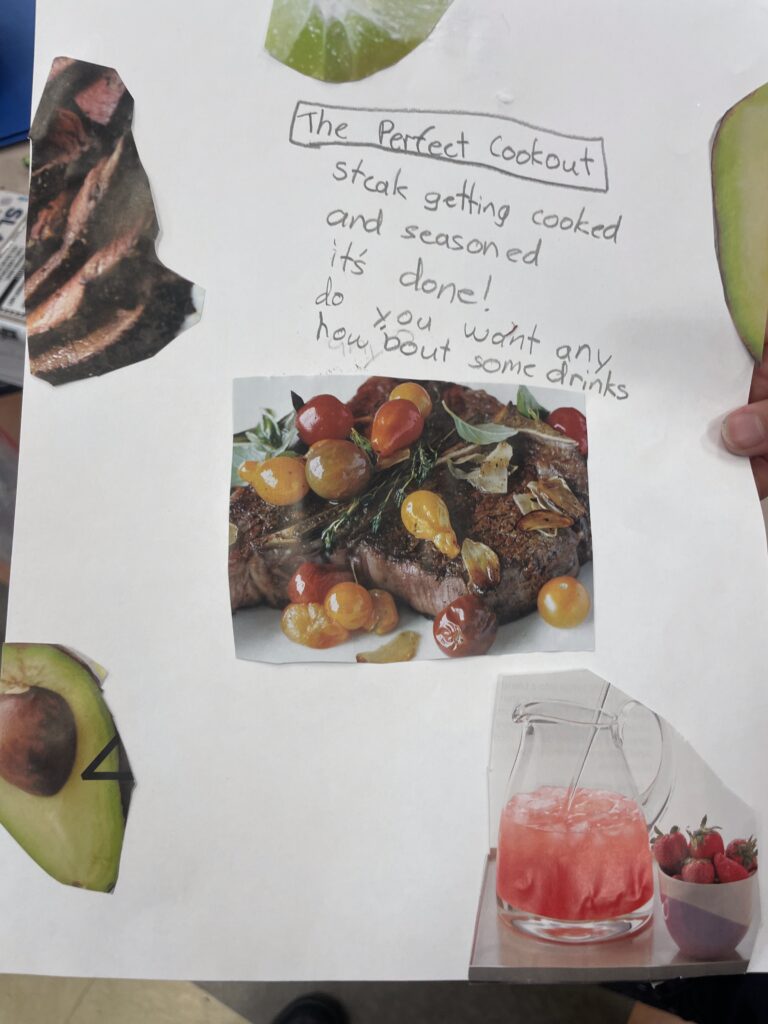 The Perfect Cookout
steak getting cooked
and seasoned
it's done!
do you want any
how bout some drinks
4